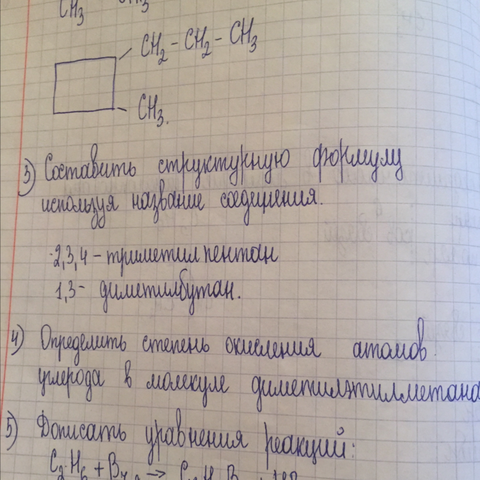 CH3 CH3
CH2 - CH2 - CH3
CH3.
3) Составить структурную формулу
используя название соединения.
2,3,4 - триметилпентан
1,3- диметилбутан.
4) Определить степень окисления атомов
углерода в молекуле диметилэтилметана
5) Дописать уравнения реакций:
C2H6 + Br2 →